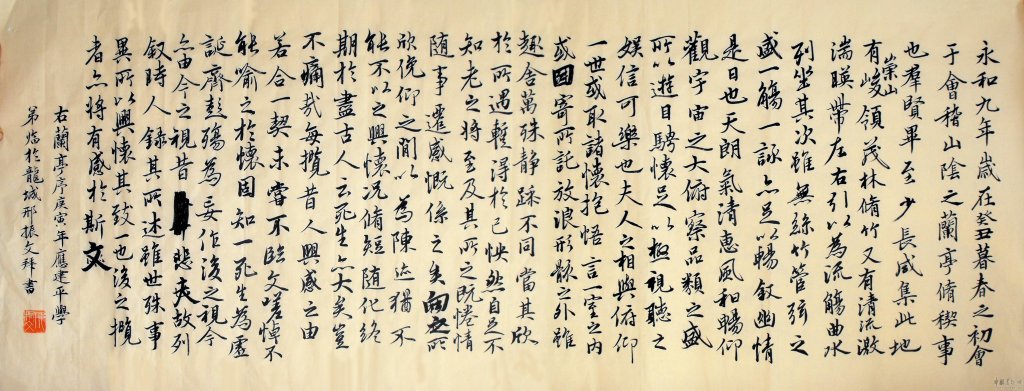 永和九年歲在癸丑暮春之初會
于會稽山陰之蘭亭脩稧事
也羣賢畢至少長咸集此地
有崇山峻領茂林脩竹又有清流激
湍暎帶左右引以為流觴曲水
列坐其次雖無絲竹管弦之
盛一觴一詠亦足以暢敘幽情
是日也天朗氣清惠風和暢仰
觀宇宙之大俯察品類之盛
所以遊目騁懷足以極視聽之
娛信可樂也夫人之相與俯仰
一世或取諸懷抱悟言一室之內
或因寄所託放浪形骸之外雖
趣舍萬殊靜躁不同當其欣
於所遇暫得於己怏然自足不
知老之將至及其所之既惓情
隨事遷感慨係之矣向之所
欣俛仰之閒以為陳迹猶不
能不以之興懷況脩短隨化終
期於盡古人云死生亦大矣豈
不痛哉每攬昔人興感之由
若合一契未嘗不臨文嗟悼不
能喻之於懷固知一死生為虛
誕齊彭殤為妄作後之視今
亦由今之視昔悲夫故列
敘時人錄其所述雖世殊事
異所以興懷其致一也後之攬
者亦將有感於斯文
右蘭亭序庚寅年應建平學
弟臨於龍城邢振文拜書